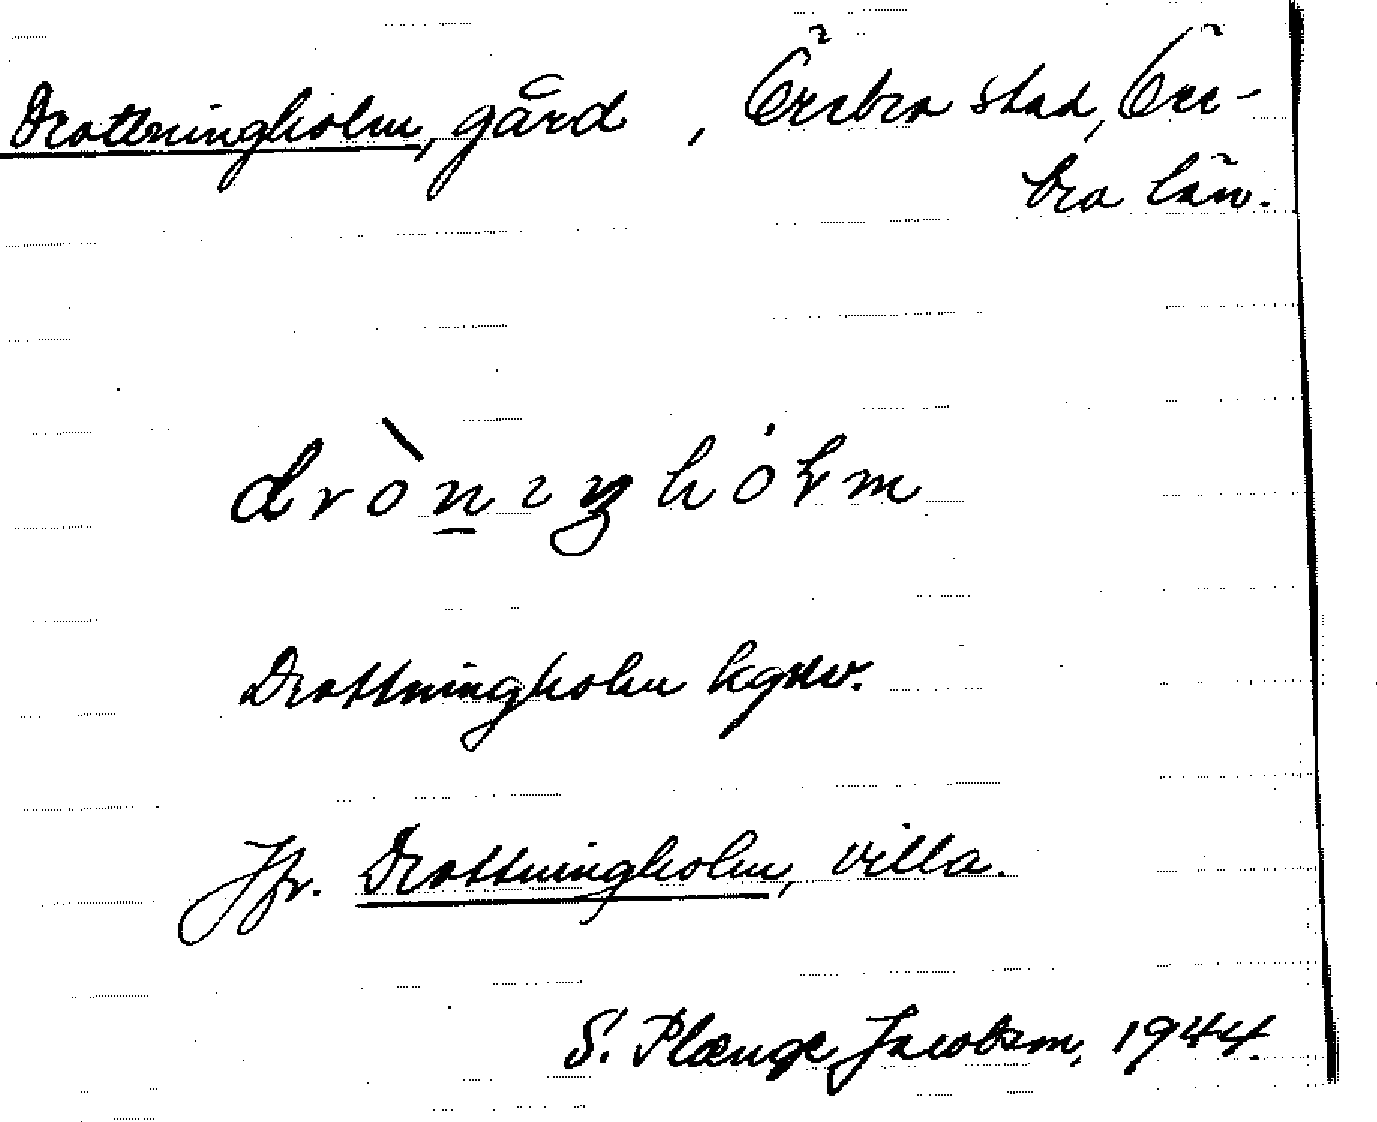 Drottningholm, gård, Örebro stad, Öre-
bro län.
drònıŋhólm
Drottningholm
Jfr. Drottningholm, villa.
S. Plænge Jacobson, 1944.